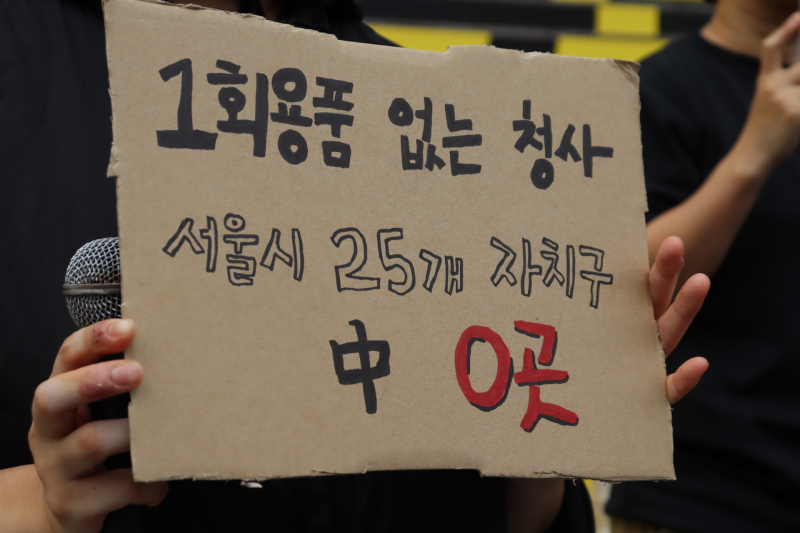 1회용품 없는 청사
서울시 25개 자치구
中 0곳